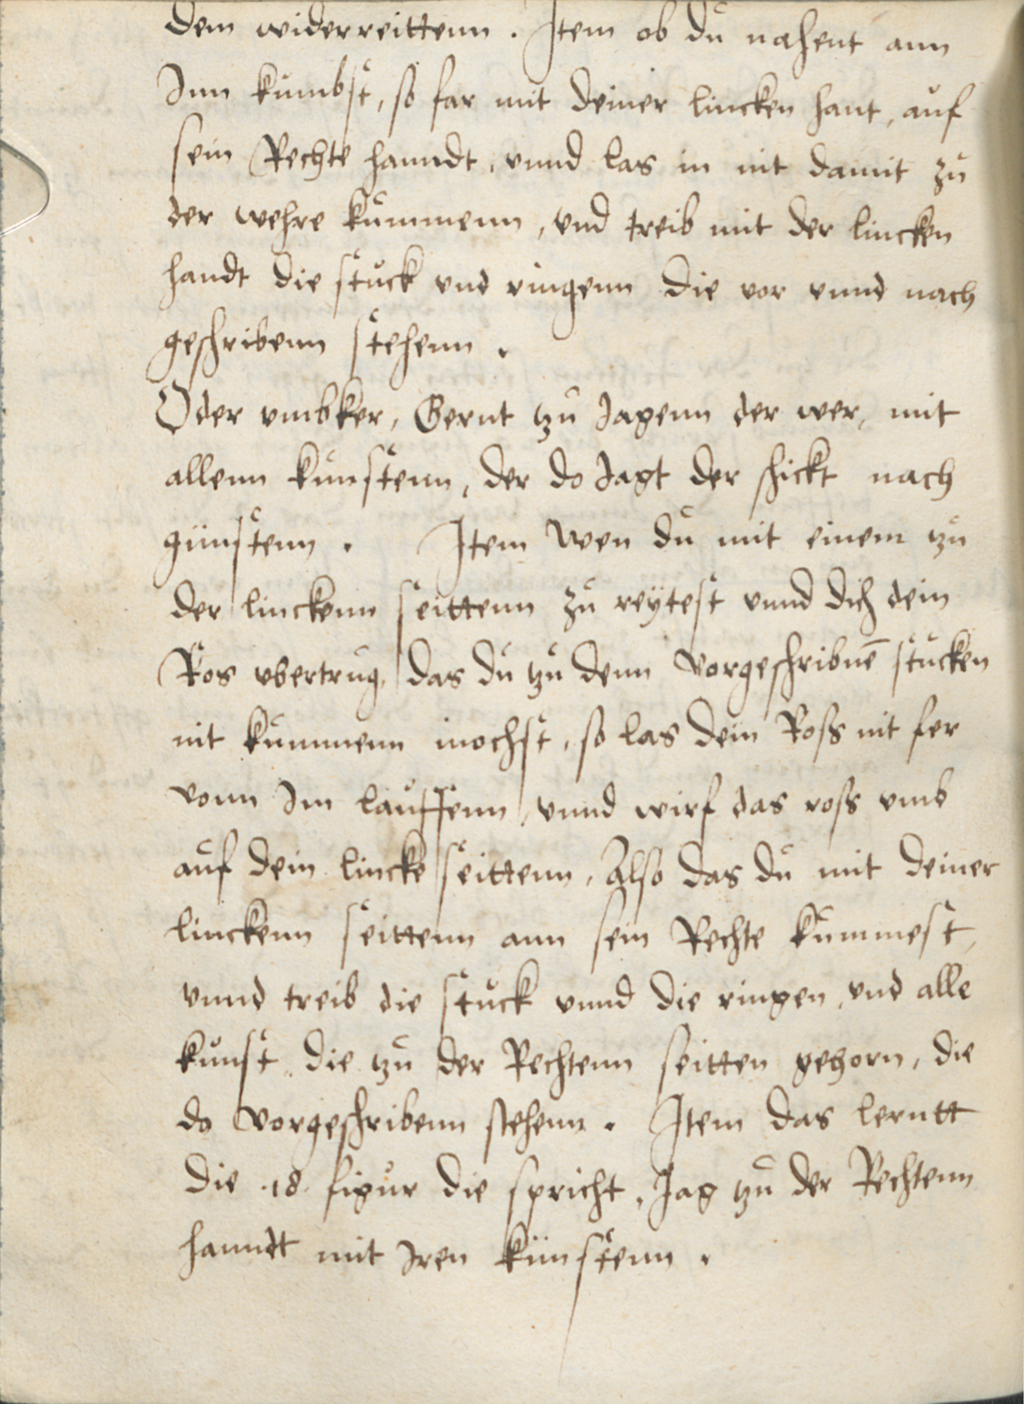 dem widerreittenn. Item ob du nahent ann
Inn kumbst, so far mit deiner lincken hant, auf
sein Rechte hanndt, vnnd las in nit damit zu
der wehre kummenn, vnd treib mit der lincken
handt die stuck vnd ringenn die vor vnnd nach
geschribenn stehenn.
Oder vmbker, Gernt tzu Jagenn der wer, mit
allenn kunstenn, der do Jagt der schickt nach
günstenn. Item Wen du mit einem tzu
der linckenn seittenn zu reÿtest vnnd dich dein
Ros vbertrug, das du tzu denn Vorgeschribnē stucken
nit kummenn mochst, so las dein Ross nit fer
vonn Im lauffenn, vnnd wirf das ross vmb
auf dein lincke seittenn, Also das du mit deiner
linckenn seittenn ann sein Rechte kummest,
vnnd treib die stuck vnnd die ringen, vnd alle
kunst, die tzu der Rechtenn seitten gehorn, die
do Vorgeschribenn stehenn. Item das lerntt
die .18. figur die spricht, Jag tzu der Rechtenn
hanndt mit Iren künstenn.